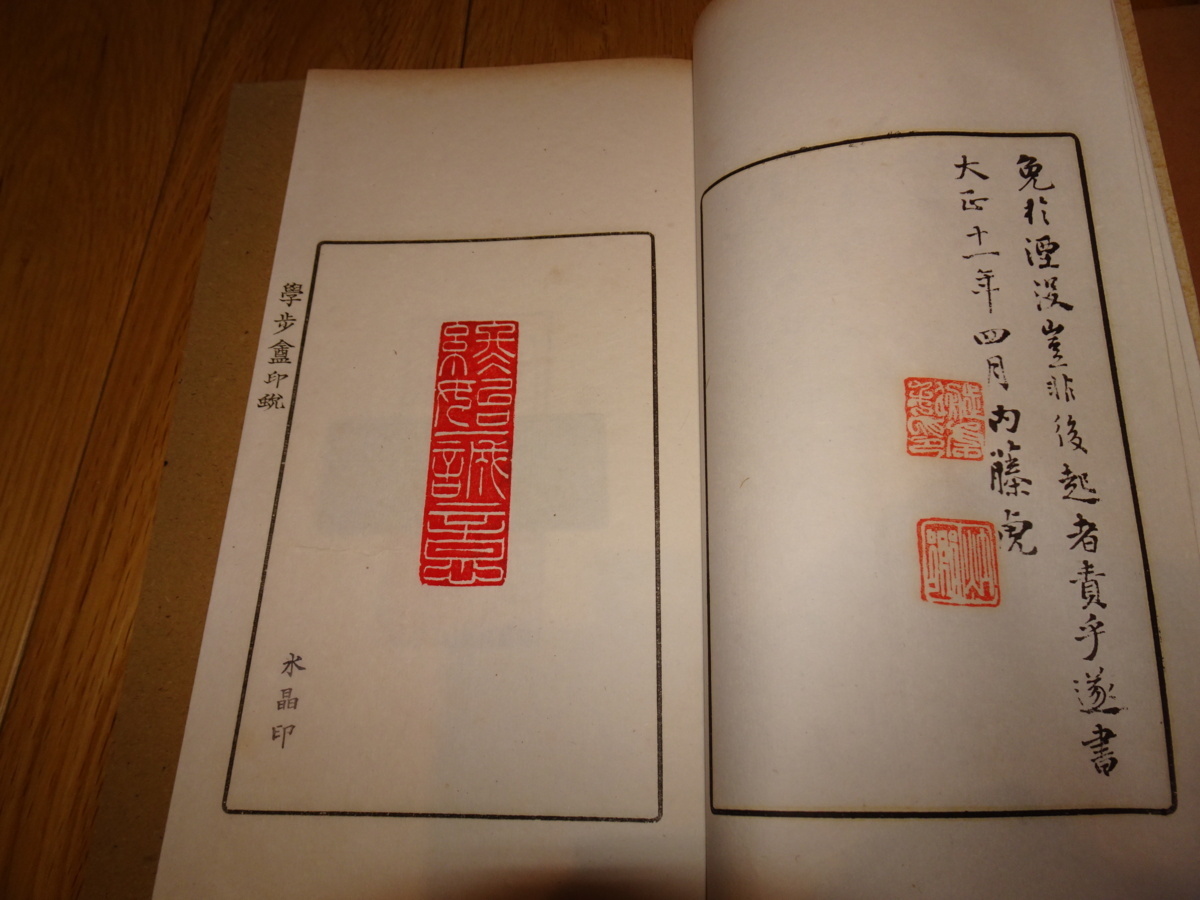 免於湮没豈非後起者責乎遂書
大正十一年四月内藤虎
學步盦印蛻
水晶印